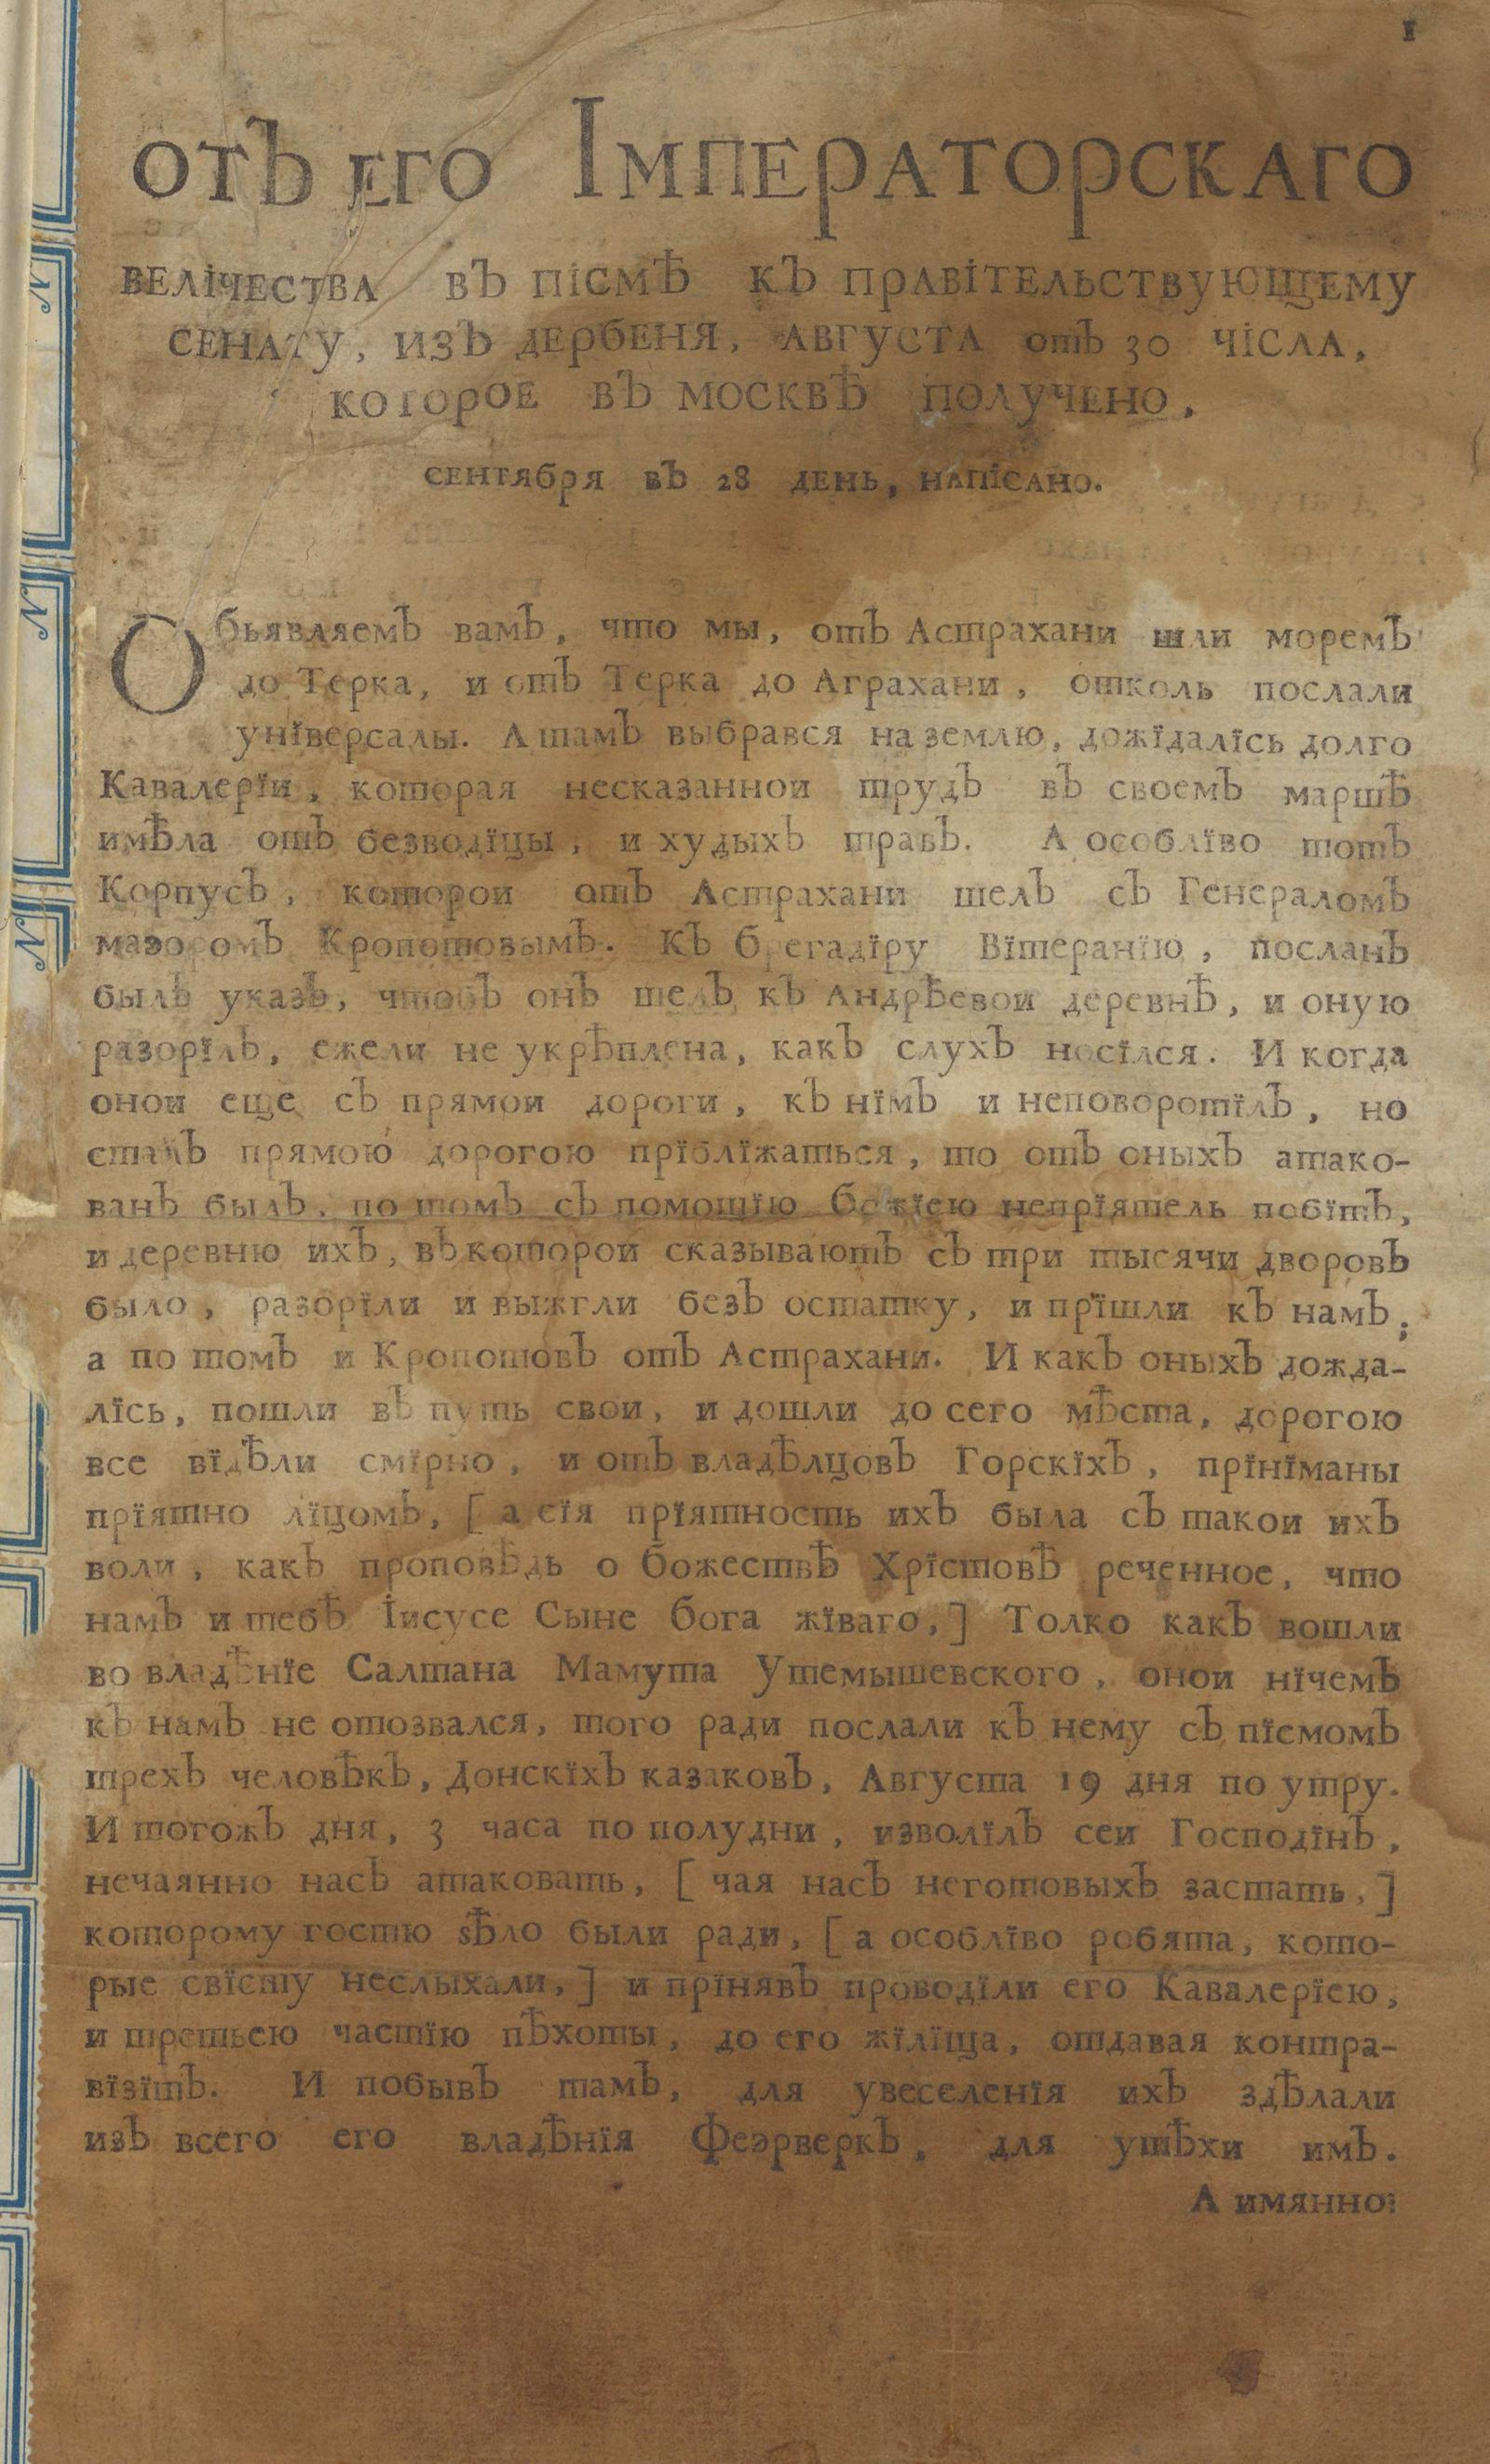 1
ОТЪ ЕГО ІМПЕРАТОРСКАГО
ВЕЛІЧЕСТВА ВЪ ПІСМѢ КЪ ПРАВІТЕЛЬСТВУЮЩЕМУ
СЕНАТУ, ИЗЪ ДЕРБЕНЯ, АВГУСТА отъ 30 ЧІСЛА,
КОТОРОЕ ВЪ МОСКВѢ ПОЛУЧЕНО,
СЕНТЯБРЯ ВЪ 28 ДЕНЬ, НАПІСАНО.
Обьявляемъ вамъ, что мы, отъ Астрахани шли моремъ
до Терка, и отъ Терка до Аграхани, отколь послали
унїверсалы. А тамъ выбрався на землю, дожїдалїсь долго
Кавалерїи, которая несказаннои трудъ въ своемъ маршѣ
имѣла отъ безводїцы, и худыхъ травъ. А особлїво тотъ
Корпусъ, которои отъ Астрахани шелъ съ Генераломъ
маэоромъ Кропотовымъ. Къ брегадїру Вїтеранїю, посланъ
былъ указъ, чтобъ онъ шелъ къ Андрѣевои деревнѣ, и оную
разорїлъ, ежели не укрѣплена, какъ слухъ носїлся. И когда
онои еще съ прямои дороги, къ нїмъ и неповоротїлъ, но
сталъ прямою дорогою прїблїжаться, то отъ оныхъ атако-
ванъ былъ, по томъ съ помощїю божїею непрїятель побїтъ,
и деревню ихъ, въ которои сказываютъ съ три тысячи дворовъ
было, разорїли и выжгли безъ остатку, и прїшли къ намъ;
а по томъ и Кропотовъ отъ Астрахани. И какъ оныхъ дожда-
лїсь, пошли въ путь свои, и дошли до сего мѣста, дорогою
все вїдѣли смїрно, и отъ владѣлцовъ Горскїхъ, прїнїманы
прїятно лїцомъ, [ а сїя прїятность ихъ была съ такои ихъ
воли, какъ проповѣдь о божествѣ Хрїстовѣ реченное, что
намъ и тебѣ Іисусе Сыне бога жїваго, ] Толко какъ вошли
во владѣнїе Салтана Мамута Утемышевского, онои нїчемъ
къ намъ не отозвался, того ради послали къ нему съ пїсмомъ
трехъ человѣкъ, Донскїхъ казаковъ, Августа 19 дня по утру.
И тогожъ дня, 3 часа по полудни, изволїлъ сеи Господїнъ,
нечаянно насъ атаковать, [ чая насъ неготовыхъ застать, ]
которому гостю ѕѣло были ради, [ а особлїво робята, кото-
рые свїсту неслыхали, ] и прїнявъ проводїли его Кавалерїею,
и третьею частїю пѣхоты, до его жїлїща, отдавая контра-
вїзїтъ. И побывъ тамъ, для увеселенїя ихъ здѣлали
изъ всего его владѣнїя Феэрверкъ, для утѣхи имъ.
А имянно: